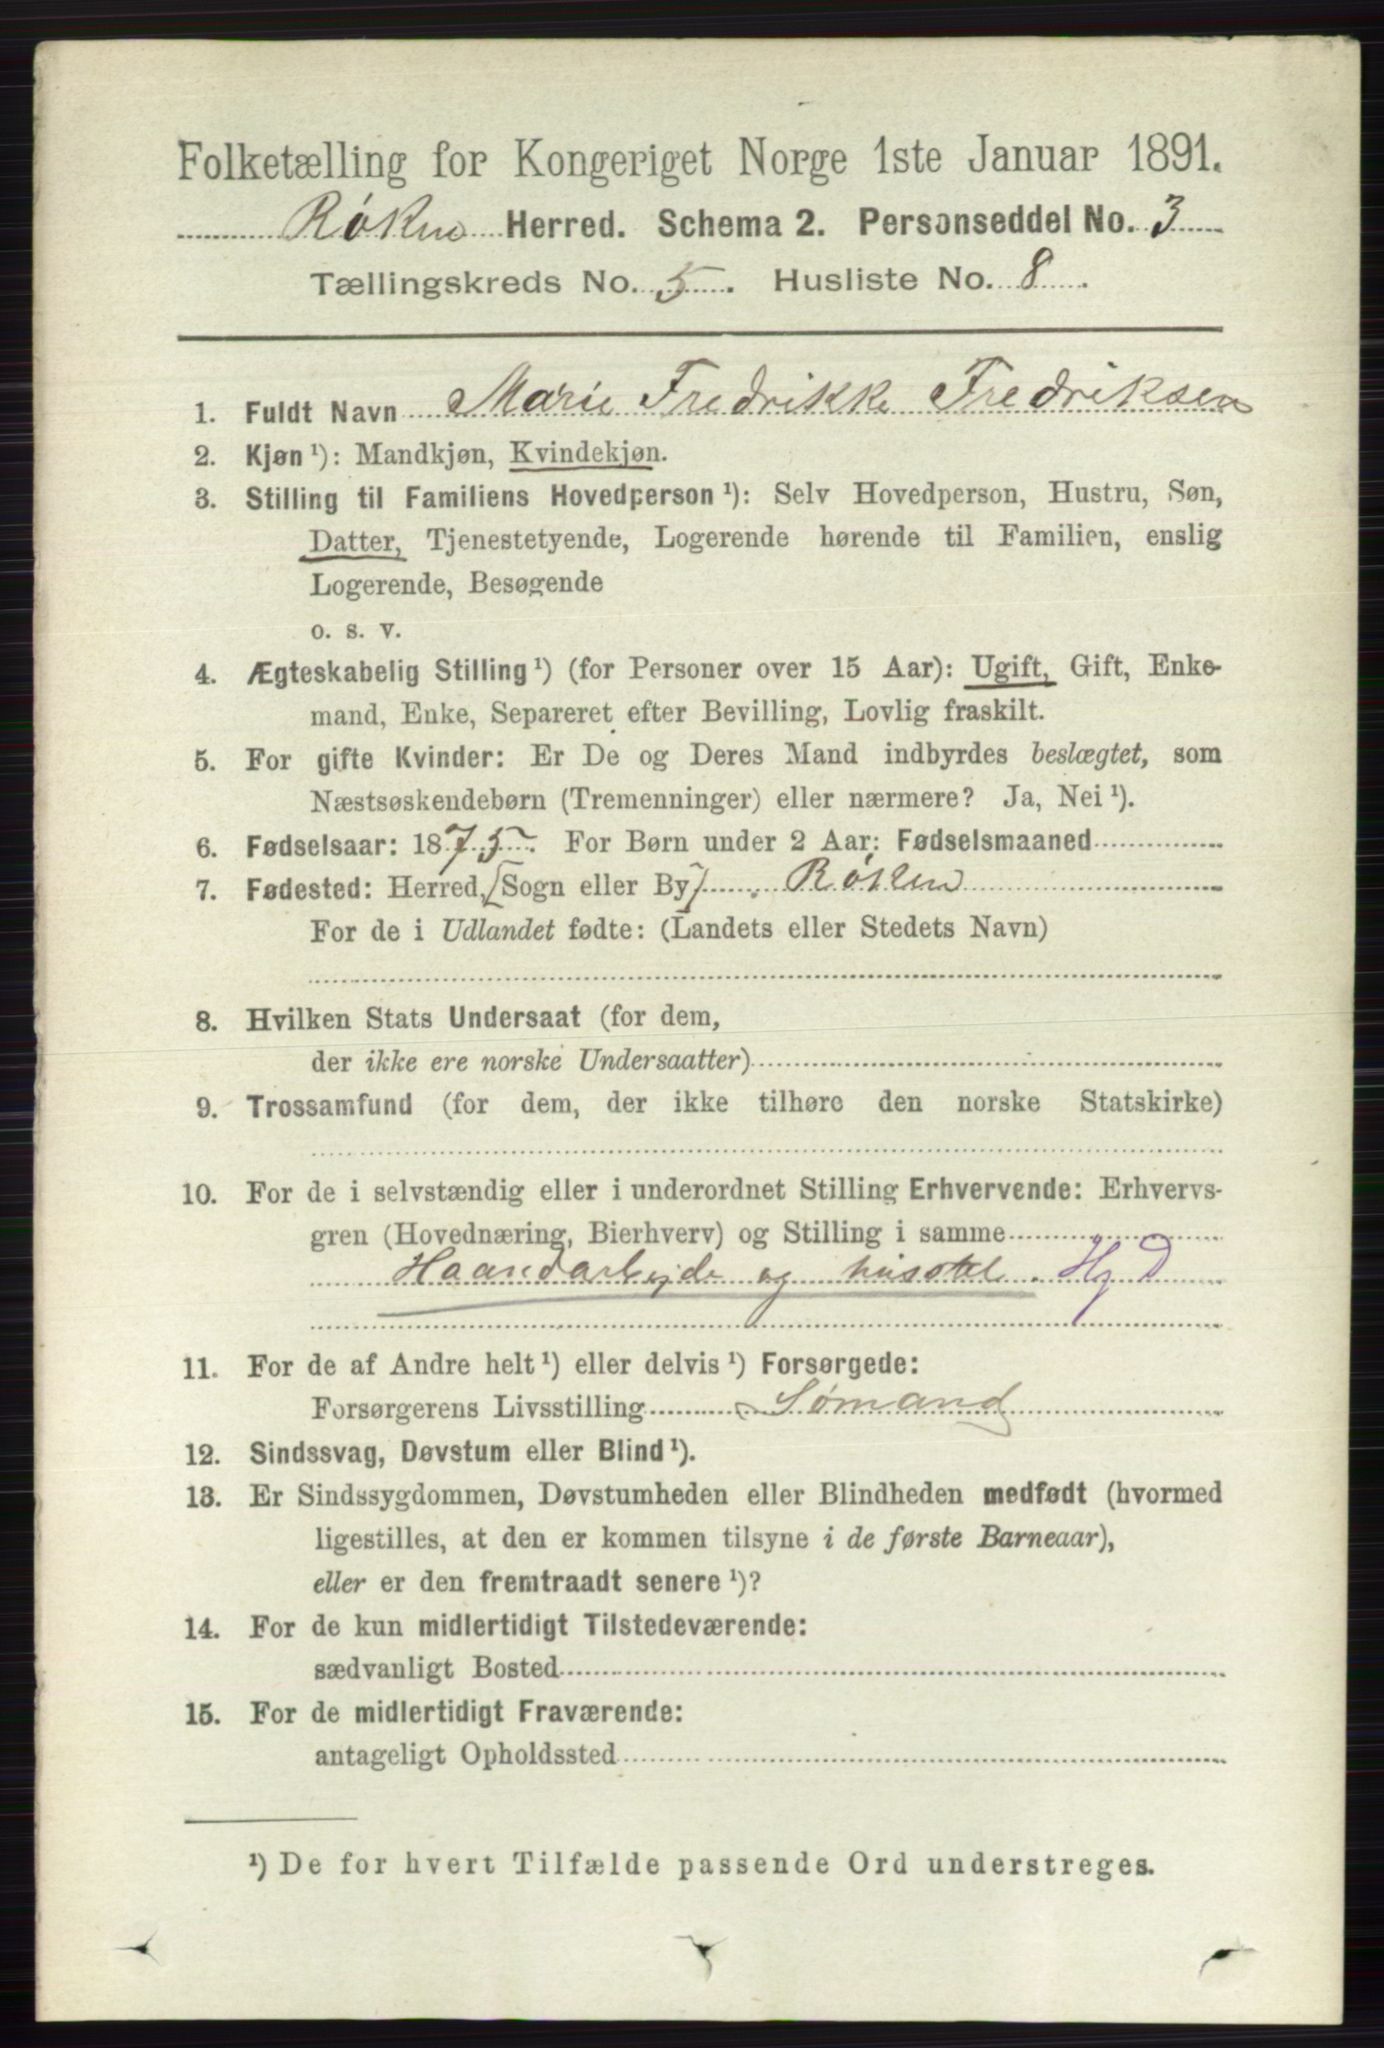 Folketælling for Kongeriget Norge 1ste Januar 1891.
Røken Herred. Schema 2. Personseddel No. 3
Tællingskreds No. 5. Husliste No. 8.
1. Fuldt Navn Marie Fredrikke Fredriksen
2. Kjøn ¹): Mandkjøn, Kvindekjøn.
3. Stilling til Familiens Hovedperson ¹): Selv Hovedperson, Hustru, Søn,
Datter, Tjenestetyende, Logerende hørende til Familien, enslig
Logerende, Besøgende
o. s. v.
4. Ægteskabelig Stilling ¹) (for Personer over 15 Aar): Ugift, Gift, Enke-
mand, Enke, Separeret efter Bevilling, Lovlig fraskilt.
5. For gifte Kvinder: Er De og Deres Mand indbyrdes beslægtet, som
Næstsøskendebørn (Tremenninger) eller nærmere? Ja, Nei ¹).
6. Fødselsaar: 1875. For Børn under 2 Aar: Fødselsmaaned
7. Fødested: Herred, [Sogn eller By] Røken
For de i Udlandet fødte: (Landets eller Stedets Navn)
8. Hvilken Stats Undersaat (for dem,
der ikke ere norske Undersaatter)
9. Trossamfund (for dem, der ikke tilhøre den norske Statskirke)
10. For de i selvstændig eller i underordnet Stilling Erhvervende: Erhvervs-
gren (Hovednæring, Bierhverv) og Stilling i samme
Haandarbejde og husstel. Hg D
11. For de af Andre helt ¹) eller delvis ¹) Forsørgede:
Forsørgerens Livsstilling Sømand
12. Sindssvag, Døvstum eller Blind ¹).
13. Er Sindssygdommen, Døvstumheden eller Blindheden medfødt (hvormed
ligestilles, at den er kommen tilsyne i de første Barneaar),
eller er den fremtraadt senere ¹)?
14. For de kun midlertidigt Tilstedeværende:
sædvanligt Bosted
15. For de midlertidigt Fraværende:
antageligt Opholdssted
¹) De for hvert Tilfælde passende Ord understreges.